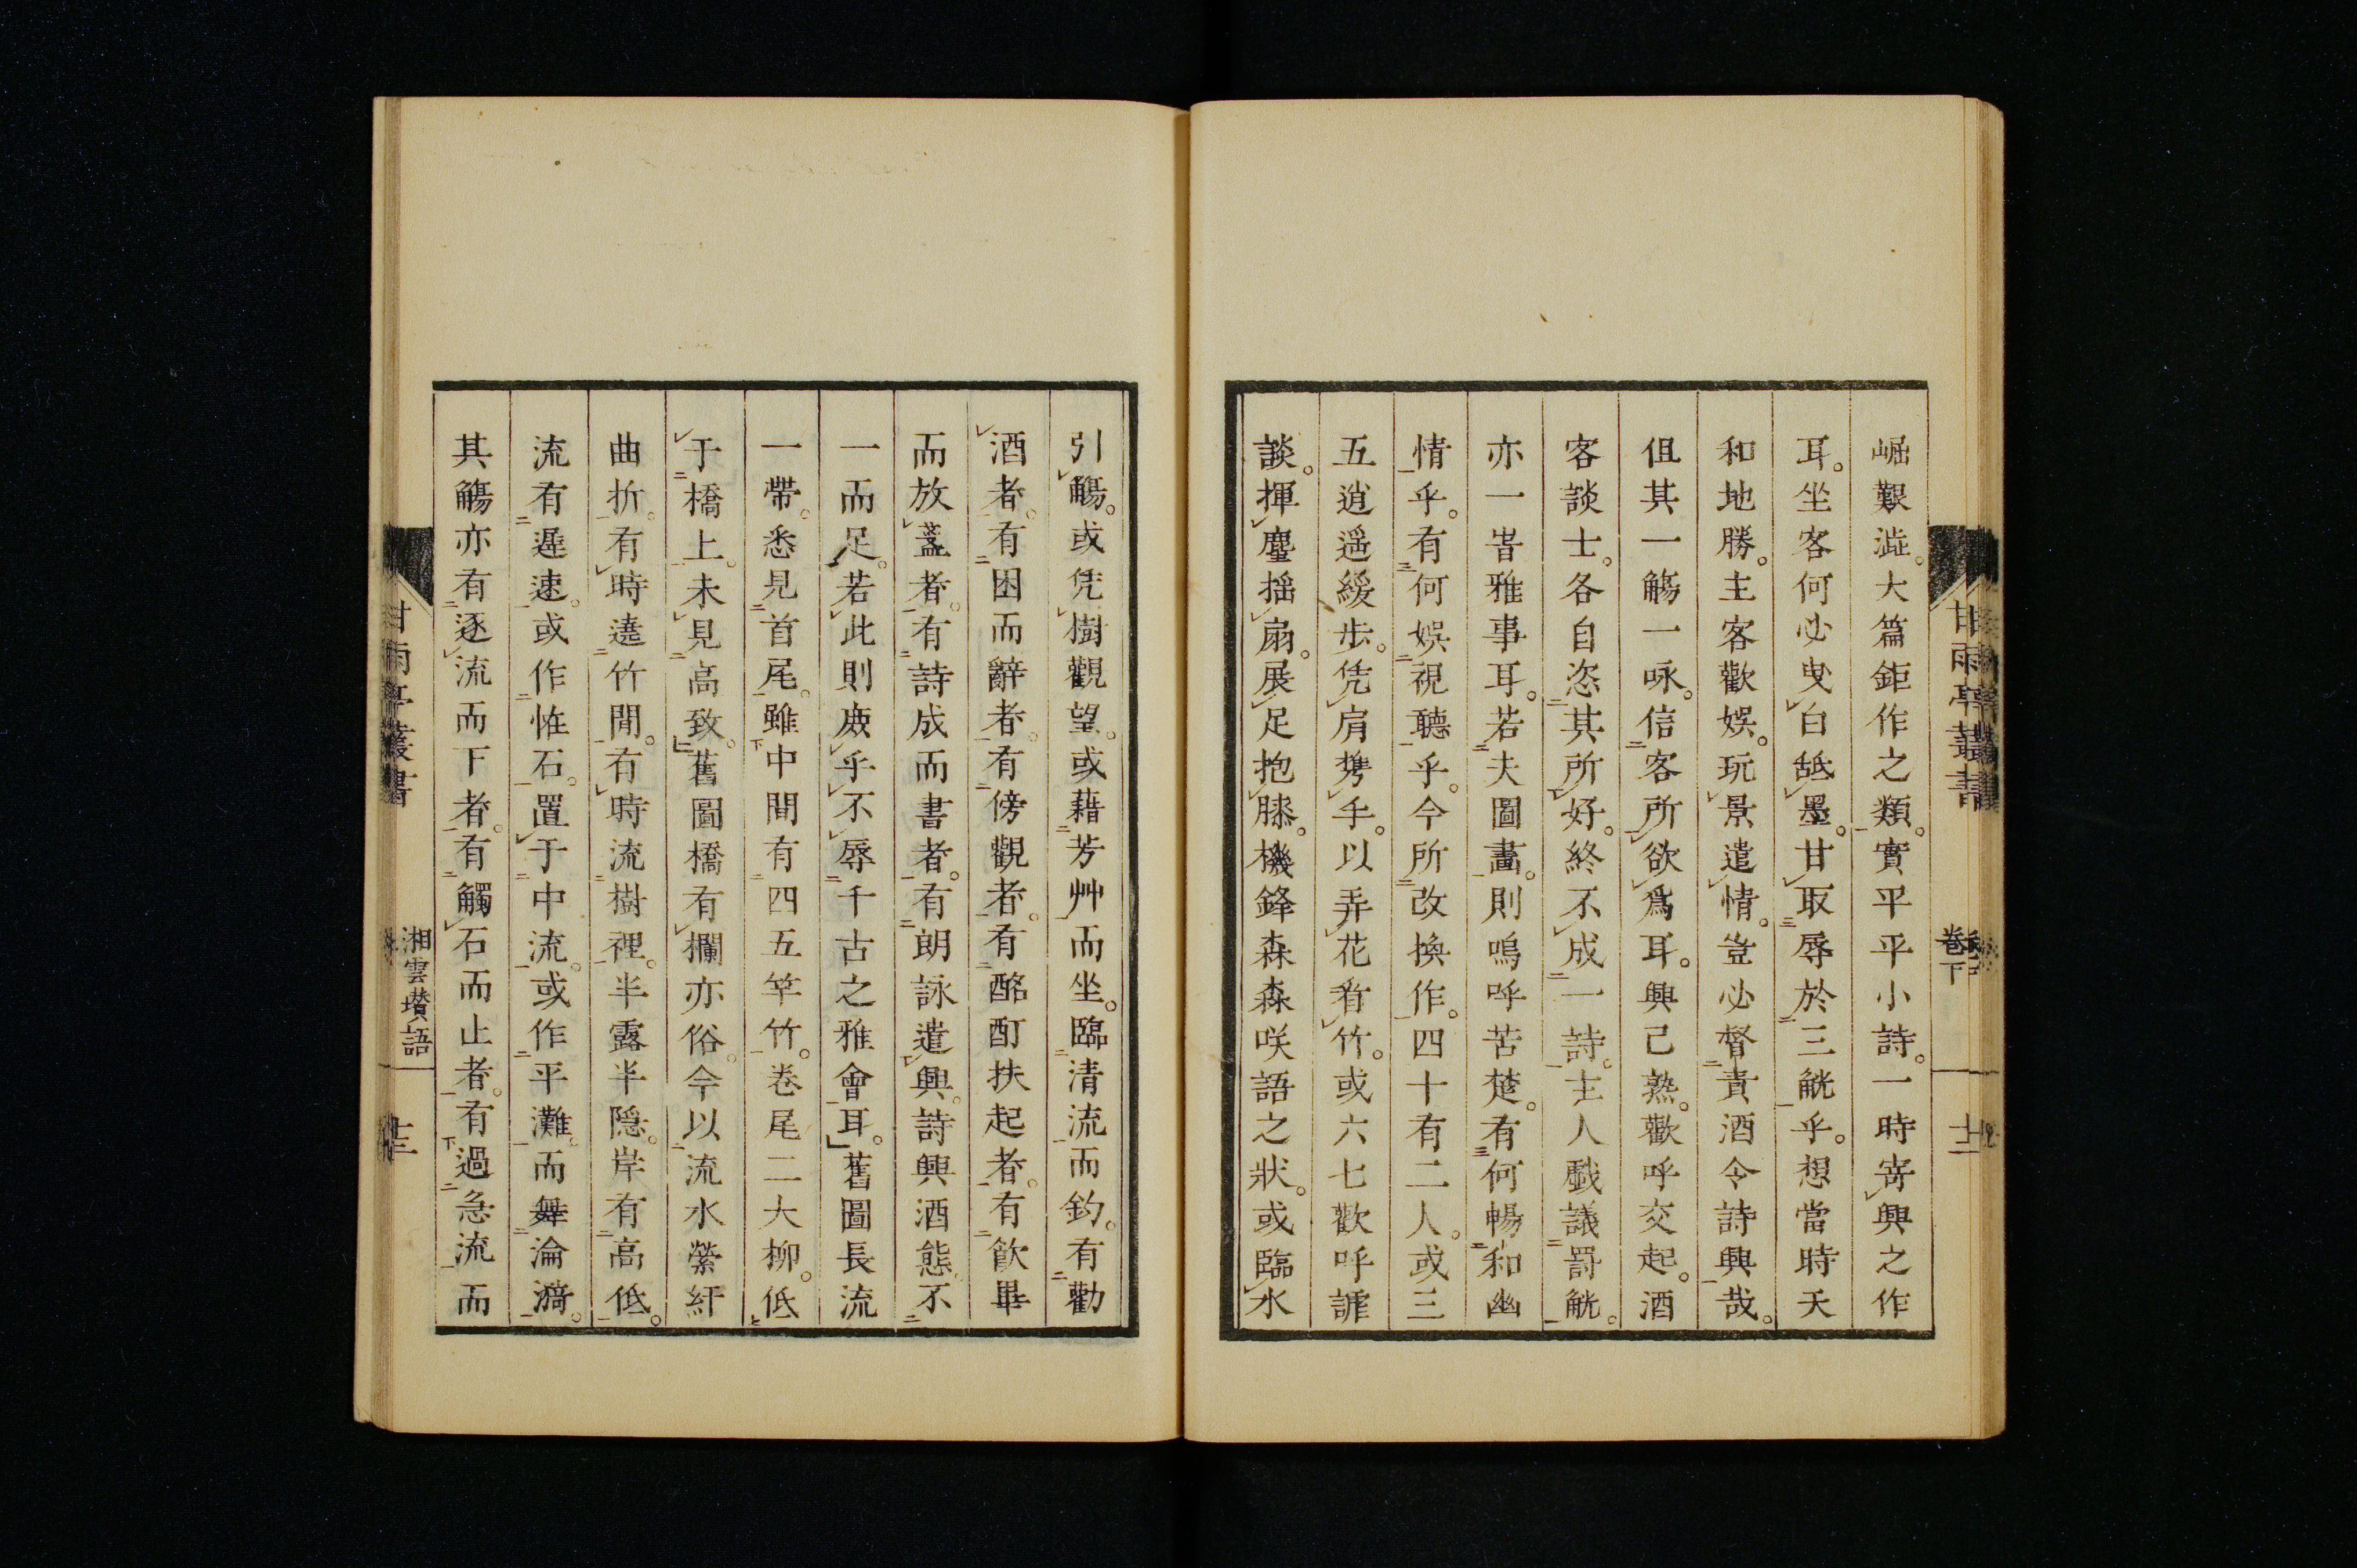 崛艱澁。大篇鉅作之類。實平平小詩。一時寄興之作
耳。坐客何必曳白舐墨。甘取辱於三觥乎。想當時天
和地勝。主客歡娯。玩景遣情。豈必督責酒令詩興哉。
但其一觴一咏。信客所欲爲耳。興已熟。歡呼交起。酒
客談士。各自恣其所好。終不成一詩。主人戲議罰觥。
亦一旹雅事耳。若夫圖畵。則嗚呼苦楚。有何暢和幽
情乎。有何娯視聽乎。今所改換作。四十有二人。或三
五逍遥緩步。凭肩携手。以弄花看竹。或六七歡呼謔
談。揮麈揺扇。展足抱膝。機鋒森森咲語之狀。或臨水
甘雨亭叢書
卷下
十二
引觴。或凭樹觀望。或藉芳艸而坐。臨清流而釣。有勸
酒者。有困而辭者。有傍觀者。有酩酊扶起者。有飮畢
而放盞者。有詩成而書者。有朗詠遣興。詩興酒態。不
一而足。若此則庻乎不辱千古之雅會耳。」舊圖長流
一帶。悉見首尾。雖中間有四五竿竹。卷尾二大柳。低
于橋上。未見高致。」舊圖橋有欄亦俗。今以流水縈紆
曲折。有時遶竹間。有時流樹裡。半露半隱。岸有高低。
流有遲速。或作恠石。置于中流。或作平灘。而舞淪漪。
其觴亦有逐流而下者。有觸石而止者。有過急流而
甘雨亭叢書
湘雲瓚語